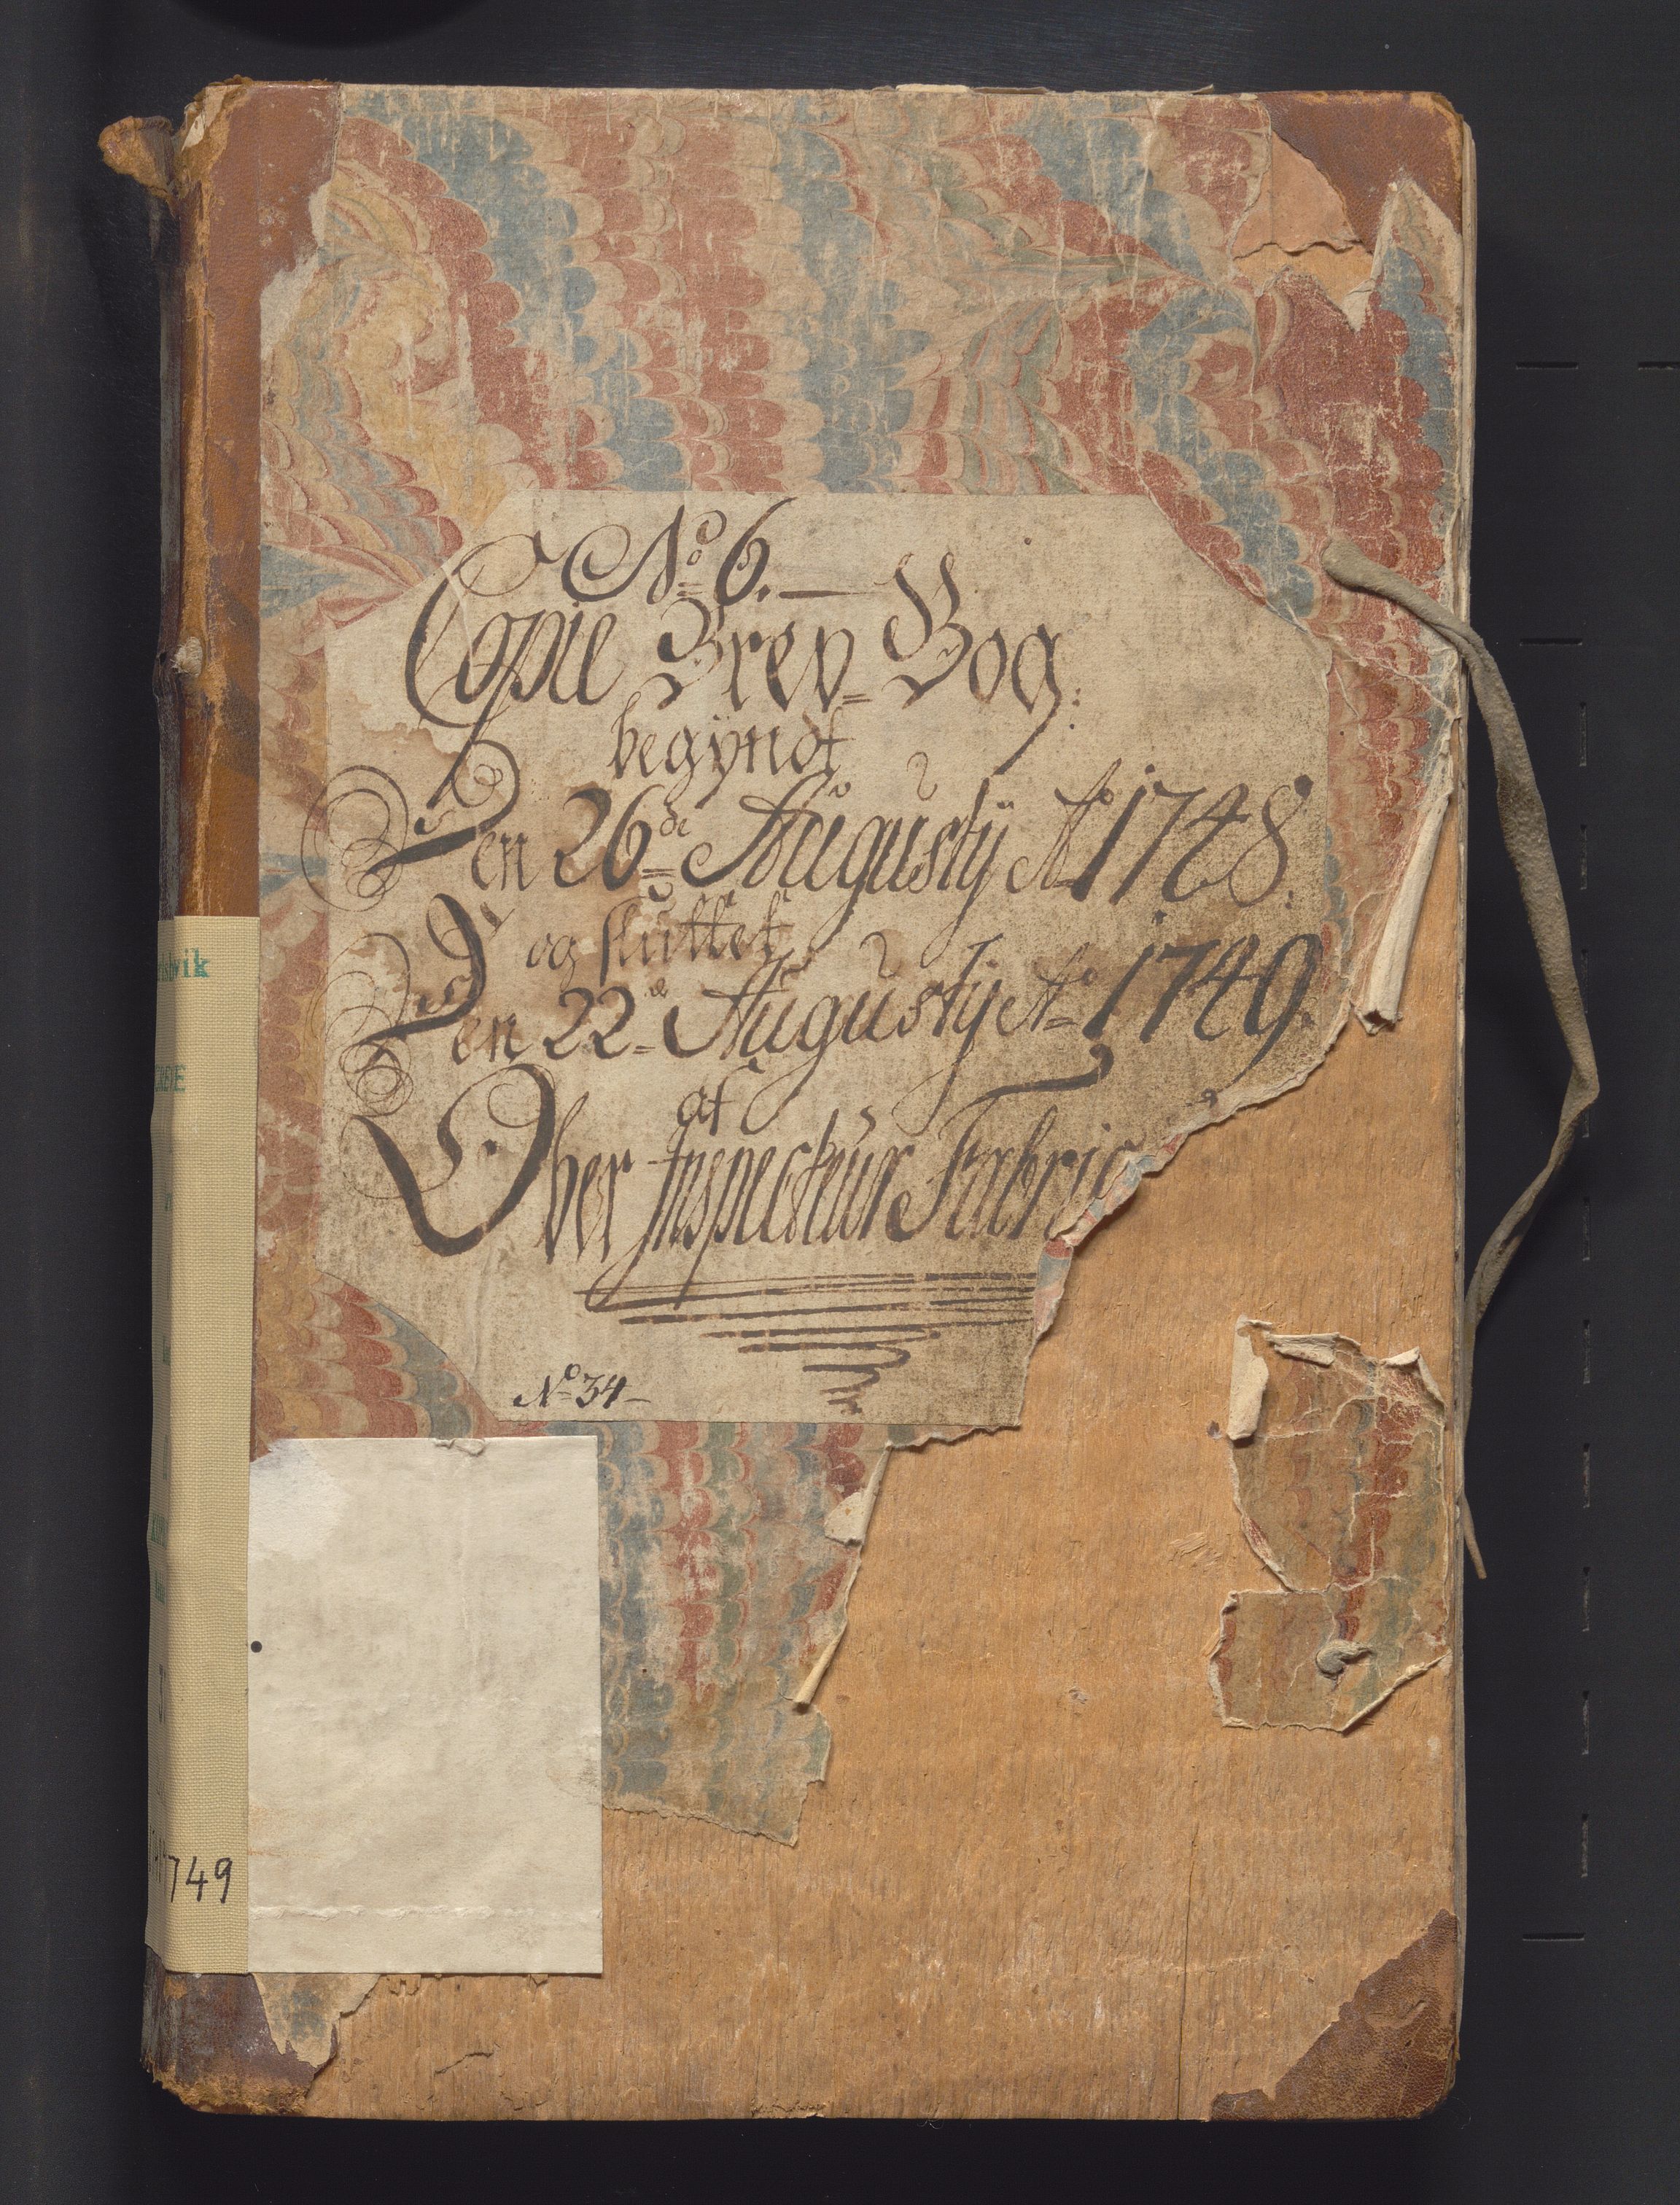 No 6.
Copie Brev=Bog
begÿndt
Den 26de Augustÿ Ao 1748.
og sluttet
Den 22de Augustÿ Ao 1749.
af
Ober Inspecteur Fabric
No 34
749